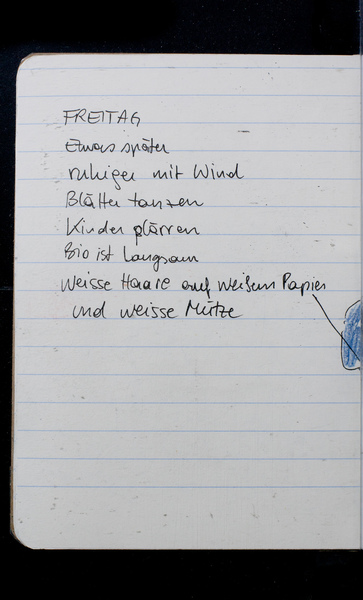 FREITAG
Etwas später
ruhiger mit Wind
Blätter tanzen
Kinder plärren
Bio ist langsam
weisse Haare auf weißem Papier
und weisse Mütze